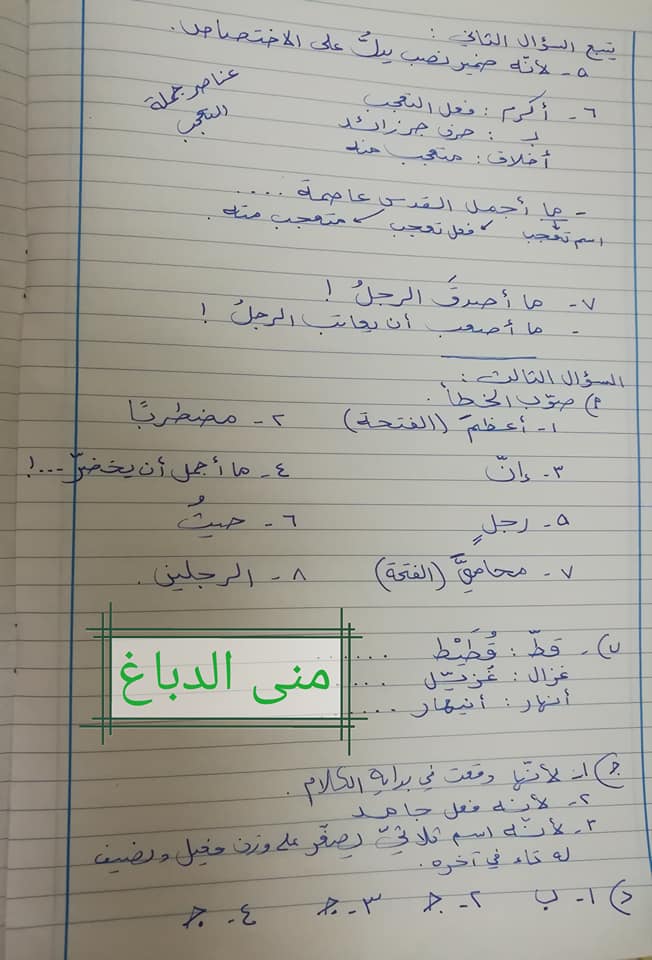 يتبع السؤال الثاني :
٥- لأنّه ضمير نصب يدلّ على الاختصاص.
٦- أكرم : فعل التعجب
بـ : حرف جر زائد
أخلاق : متعجب منه
عناصر جملة
التعجب
- ما أجمل القدس عاصمة ....
اسم تعجب فعل تعجب متعجب منه.
٧- ما أصدقَ الرجلُ !
- ما أصعب أن يعاتب الرجلُ !
السؤال الثالث :
م) صوّب الخطأ.
١- أعظمَ (الفتحة) ٢- مضطربًا
٣- إنّ ٤- ما أجمل أن يخضرّ ...!
٥- رجلٍ ٦- حيثُ
٧- محاميَّ (الفتحة) ٨- الرجلين.
ب)- قطّ : قُطَيْط ......
غزال : غزيّل ....
أنهار : أنيهار ......
منى الدباغ
ج) ١- لأنّها وقعت في بداية الكلام.
٢- لأنه فعل جامد
٣- لأنّه اسم ثلاثيّ يصغّر على وزن فعيل ونضيف
له تاء في آخره.
د) ١- ب ٢- ج ٣- ج ٤- ج